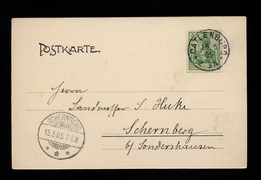 POSTKARTE.
CATLENBURG
Herrn
Landwirth S. Huke
Schernberg
b/ Sondershausen
SCHERNBERG
15.5.05.7-8.N.